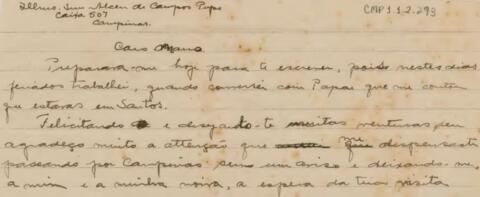 Illmo. Snr. Alceu de Campos Pupo
Caixa 507
Campinas.
CMP 1.1.2.293
Caro Mano
Preparara-me hoje para te escrever, pois nestes dias
feriados trabalhei, quando conversei com Papae que me contou
que estaras em Santos.
Felicitando e desejando-te muitas venturas, eu
agradeço muito a attenção que me dispensaste
passando por Campinas sem um aviso e deixando-me,
a mim e a minha noiva, a espera da tua visita